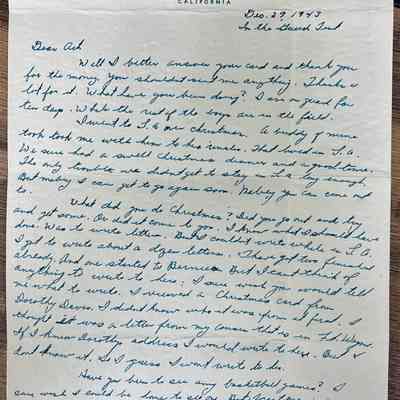 CALIFORNIA
Dec. 29 1943
In the Guard Tent
Dear Ark
Well I better answer your card and thank you
for the money. You shouldn't sent me anything. Thanks a
lot for it. What have you been doing? I am on guard for
ten days. While the rest of the boys are in the field.
I went to L.A. over Christmas. A buddy of mine
took me with him to his uncles. That lived in L.A.
We sure had a swell Christmas dinner and a good time.
The only trouble we didn't get to stay in L.A. long enough.
But maybe I can get to go again soon. Maybe you can come out
to.
What did you do Christmas? Did you go out and try
and get some. Or did it come to you. I know what I should have
done. Was to write letters. But I couldn't write while in L.A.
I got to write about a dozen letters. I have got two finished
already. And one started to Bernice. But I can't think of
anything to write to her. I sure wish you would tell
me what to write. I received a Christmas card from
Dorothy Davis. I didn't know who it was from at first. I
thought it was a letter from my cousin that is in Ft. Wayne.
If I knew Dorothy address I would write to her. But I
don't know it. So I guess I won't write to do.
Have you been to see any basketball games? I
sure wish I could be home to see one. But